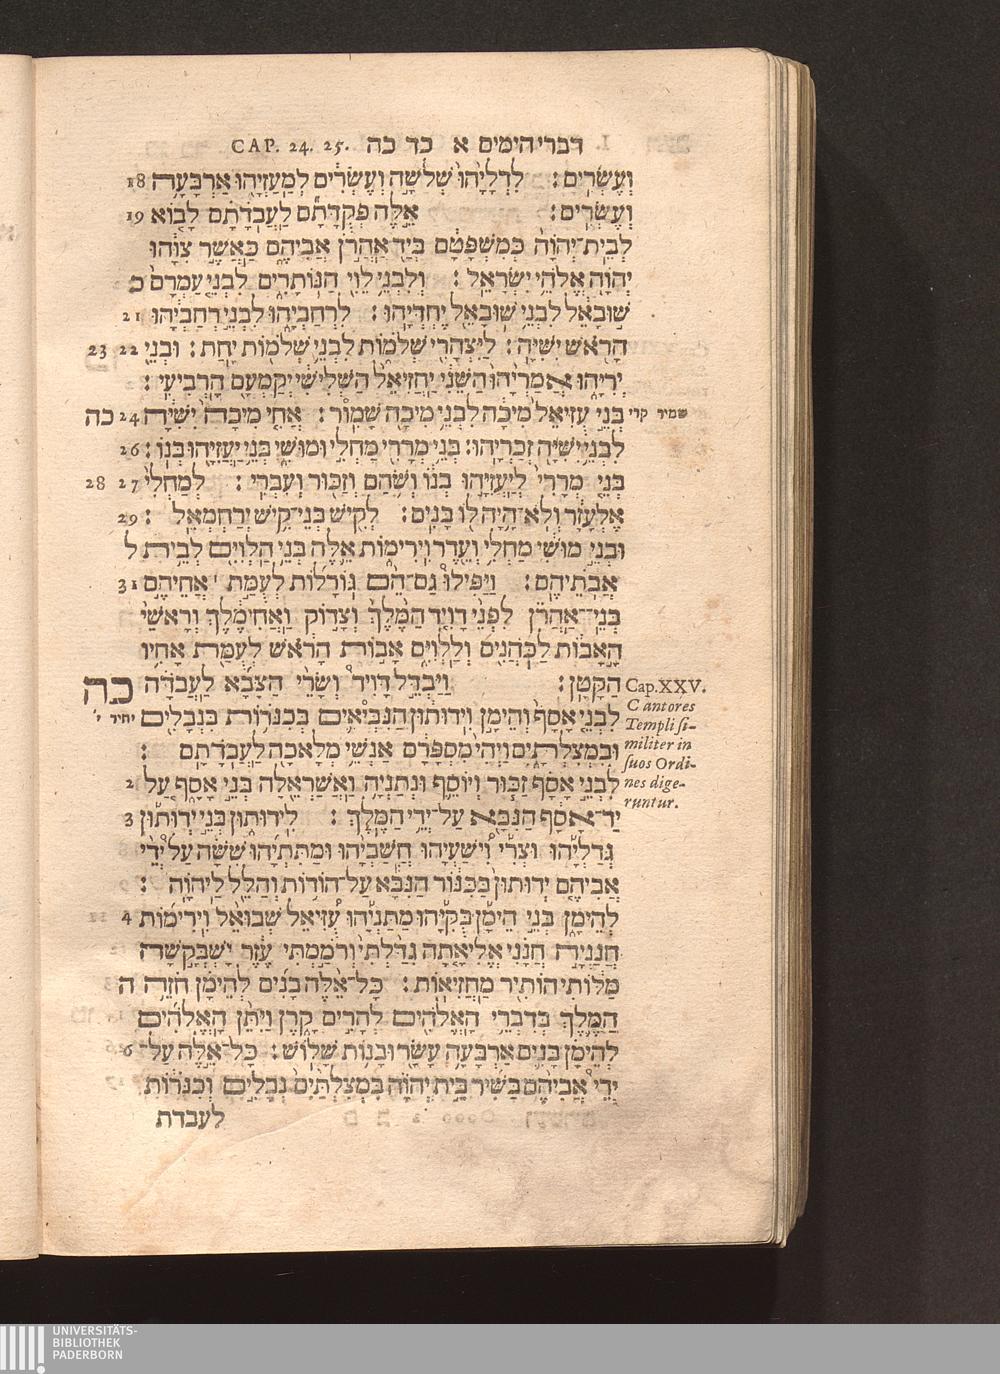 דברי הימים א כד כה CAP. 24. 25.
וְעֶשְׂרִים: לִדְלָיָהוּ שְׁלֹשָׁה וְעֶשְׂרִים לְמַעַזְיָהוּ אַרְבָּעָה 18
וְעֶשְׂרִים: אֵלֶּה פְקֻדָּתָם לַעֲבֹדָתָם לָבוֹא 19
לְבֵית־יְהוָה כְּמִשְׁפָּטָם בְּיַד אַהֲרֹן אֲבִיהֶם כַּאֲשֶׁר צִוָּהוּ
יְהוָה אֱלֹהֵי יִשְׂרָאֵל: וְלִבְנֵי לֵוִי הַנּוֹתָרִים לִבְנֵי עַמְרָם כ
שׁוּבָאֵל לִבְנֵי שׁוּבָאֵל יֶחְדְּיָהוּ: לִרְחַבְיָהוּ לִבְנֵי רְחַבְיָהוּ 21
הָרֹאשׁ יִשִּׁיָּה: לַיִּצְהָרִי שְׁלֹמוֹת לִבְנֵי שְׁלֹמוֹת יָחַת: וּבְנֵי 22 23
יְרִיָּהוּ אֲמַרְיָהוּ הַשֵּׁנִי יַחֲזִיאֵל הַשְּׁלִישִׁי יְקַמְעָם הָרְבִיעִי:
שמיר קרי בְּנֵי עֻזִּיאֵל מִיכָה לִבְנֵי מִיכָה שָׁמוֹר: אֲחִי מִיכָה יִשִּׁיָּה 24 כה
לִבְנֵי יִשִּׁיָּה זְכַרְיָהוּ: בְּנֵי מְרָרִי מַחְלִי וּמוּשִׁי בְּנֵי יַעֲזִיָּהוּ בְנוֹ: 26
בְּנֵי מְרָרִי לְיַעֲזִיָּהוּ בְנוֹ וְשֹׁהַם וְזַכּוּר וְעִבְרִי: לְמַחְלִי 27 28
אֶלְעָזָר וְלֹא־הָיָה לוֹ בָּנִים: לְקִישׁ בְּנֵי־קִישׁ יְרַחְמְאֵל: 29
וּבְנֵי מוּשִׁי מַחְלִי וְעֵדֶר וִירִימוֹת אֵלֶּה בְּנֵי הַלְוִיִּם לְבֵית ל
אֲבֹתֵיהֶם: וַיַּפִּילוּ גַם־הֵם גּוֹרָלוֹת לְעֻמַּת ׀ אֲחֵיהֶם 31
בְּנֵי־אַהֲרֹן לִפְנֵי דָוִיד הַמֶּלֶךְ וְצָדוֹק וַאֲחִימֶלֶךְ וְרָאשֵׁי
הָאָבוֹת לַכֹּהֲנִים וְלַלְוִיִּם אָבוֹת הָרֹאשׁ לְעֻמַּת אָחִיו
הַקָּטָן: וַיַּבְדֵּל דָּוִיד וְשָׂרֵי הַצָּבָא לַעֲבֹדָה כה
לִבְנֵי אָסָף וְהֵימָן וִידוּתוּן הַנְּבִיאִים בְּכִנֹּרוֹת בִּנְבָלִים יתיר י׳
וּבִמְצִלְתָּיִם וַיְהִי מִסְפָּרָם אַנְשֵׁי מְלָאכָה לַעֲבֹדָתָם:
לִבְנֵי אָסָף זַכּוּר וְיוֹסֵף וּנְתַנְיָה וַאֲשַׂרְאֵלָה בְּנֵי אָסָף עַל 2
יַד־אָסָף הַנִּבָּא עַל־יְדֵי הַמֶּלֶךְ: לִידוּתוּן בְּנֵי יְדוּתוּן 3
גְּדַלְיָהוּ וּצְרִי וִישַׁעְיָהוּ חֲשַׁבְיָהוּ וּמַתִּתְיָהוּ שִׁשָּׁה עַל יְדֵי
אֲבִיהֶם יְדוּתוּן בַּכִּנּוֹר הַנִּבָּא עַל־הוֹדוֹת וְהַלֵּל לַיהוָה:
לְהֵימָן בְּנֵי הֵימָן בֻּקִּיָּהוּ מַתַּנְיָהוּ עֻזִּיאֵל שְׁבוּאֵל וִירִימוֹת 4
חֲנַנְיָה חֲנָנִי אֱלִיאָתָה גִדַּלְתִּי וְרֹמַמְתִּי עֶזֶר יָשְׁבְּקָשָׁה
מַלּוֹתִי הוֹתִיר מַחֲזִיאוֹת: כָּל־אֵלֶּה בָנִים לְהֵימָן חֹזֵה ה
הַמֶּלֶךְ בְּדִבְרֵי הָאֱלֹהִים לְהָרִים קָרֶן וַיִּתֵּן הָאֱלֹהִים
לְהֵימָן בָּנִים אַרְבָּעָה עָשָׂר וּבָנוֹת שָׁלוֹשׁ: כָּל־אֵלֶּה עַל־ 6
יְדֵי אֲבִיהֶם בַּשִּׁיר בֵּית יְהוָה בִּמְצִלְתַּיִם נְבָלִים וְכִנֹּרוֹת
לעבדת
Cap.XXV.
Cantores
Templi si-
militer in
suos Ordi-
nes dige-
runtur.
UNIVERSITÄTS-
BIBLIOTHEK
PADERBORN